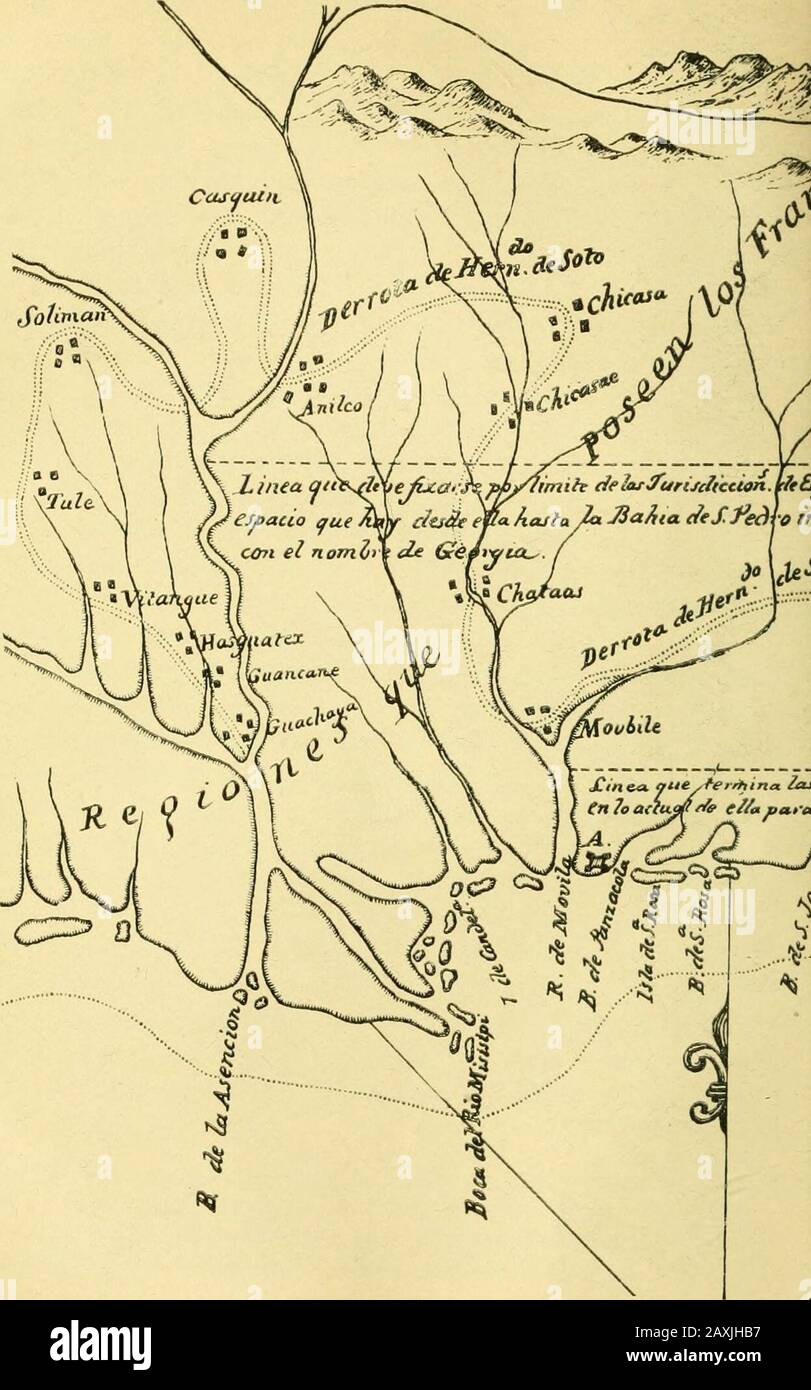 Casquin
Soliman
Derrota de Hern.do de Soto
Chicasa
Anilco
Chicasae
Tule
Linea que deve fixarse por limite de las Jurisdiccion.s de E
espacio que hay desde ella hasta la Bahia de S. Pedro
con el nombre de Georgia.
Vitangue
Chataas
Derrota de Hern.do de S
Hasguatex
Guancane
Guachaya
Movbile
Regiones que Poseen los Fran
Linea que termina las
en lo actual de ella para
A.
B. de la Asencion
Boca del Rio Misisipi
R. de Movila
B. de Panzacola
Isla de S.a Rosa
B. de S.a Rosa
B. de S. Jo
alamy
Image ID: 2AXJHB7
www.alamy.com